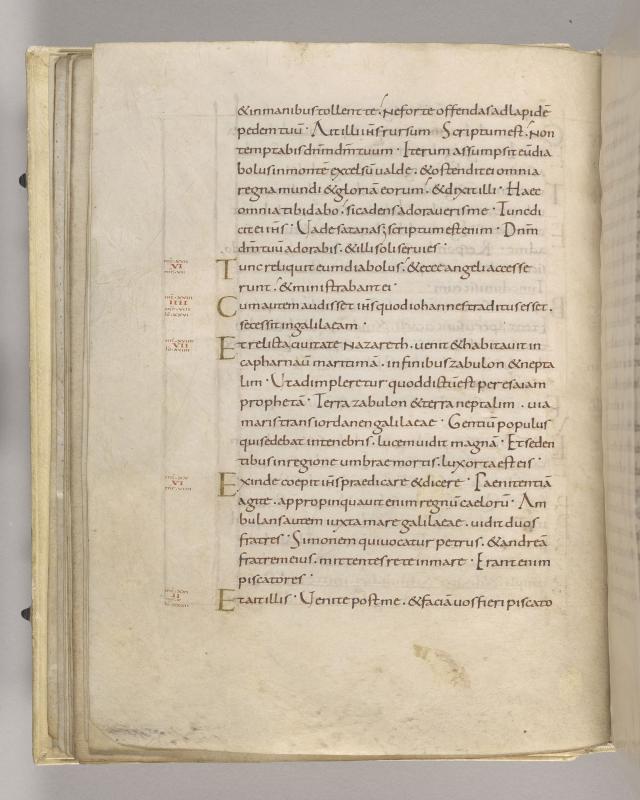 &inmanibus tollent te. Ne forte offendas ad lapidē
pedem tuū. Ait illi ihs rursum. Scriptum est. Non
temptabis dnm dm tuum. Iterum assumpsit eū dia
bolus in monte excelsū valde. & ostendit ei omnia
regna mundi & gloriā eorum. & dixit illi. Haec
omnia tibi dabo. si cadens adoraveris me. Tunc di
cit ei ihs. Vade satanas; scriptum est enim. Dnm
dm tuū adorabis. & illi soli servies.
Tunc reliquit eum diabolus. & ecce angeli accesse
runt. & ministrabant ei.
Cum autem audisset ihs quod iohannes traditus esset.
secessit in galilaeam.
Et relicta civitate Nazareth. venit & habitavit in
capharnaū maritimā. in finibus zabulon & nepta
lim. Ut adimpleretur quod dictū est per esaiam
prophetā. Terra zabulon & terra neptalim. via
maris trans iordanen galilaeae. Gentiū populus
qui sedebat in tenebris. lucem vidit magnā. Et seden
tibus in regione umbrae mortis. lux orta est eis.
VI
Exinde coepit ihs praedicare & dicere. Paenitentiā
agite. appropinquavit enim regnū caelorū. Am
bulans autem iuxta mare galilaeae. vidit duos
fratres. Simonem qui vocatur petrus. & andreā
fratrem eius. mittentes rete in mare. Erant enim
piscatores.
II
Et ait illis. Venite post me. & faciā vos fieri piscato